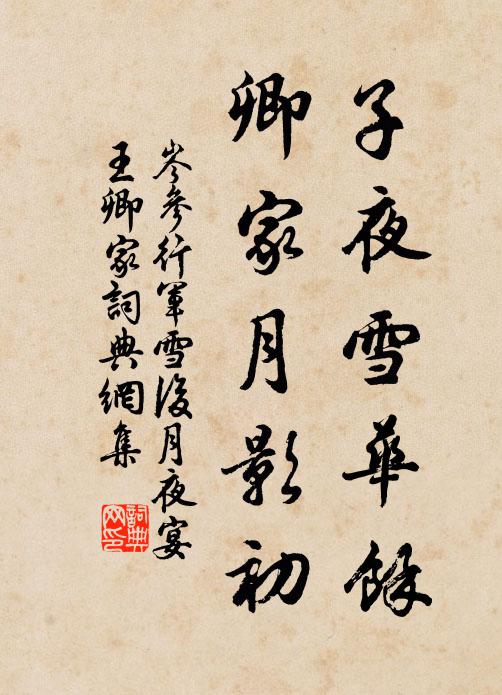 子夜雪華餘
卿家月影初
岑參行軍雪後月夜宴
王卿家詞典網集
詞典网印